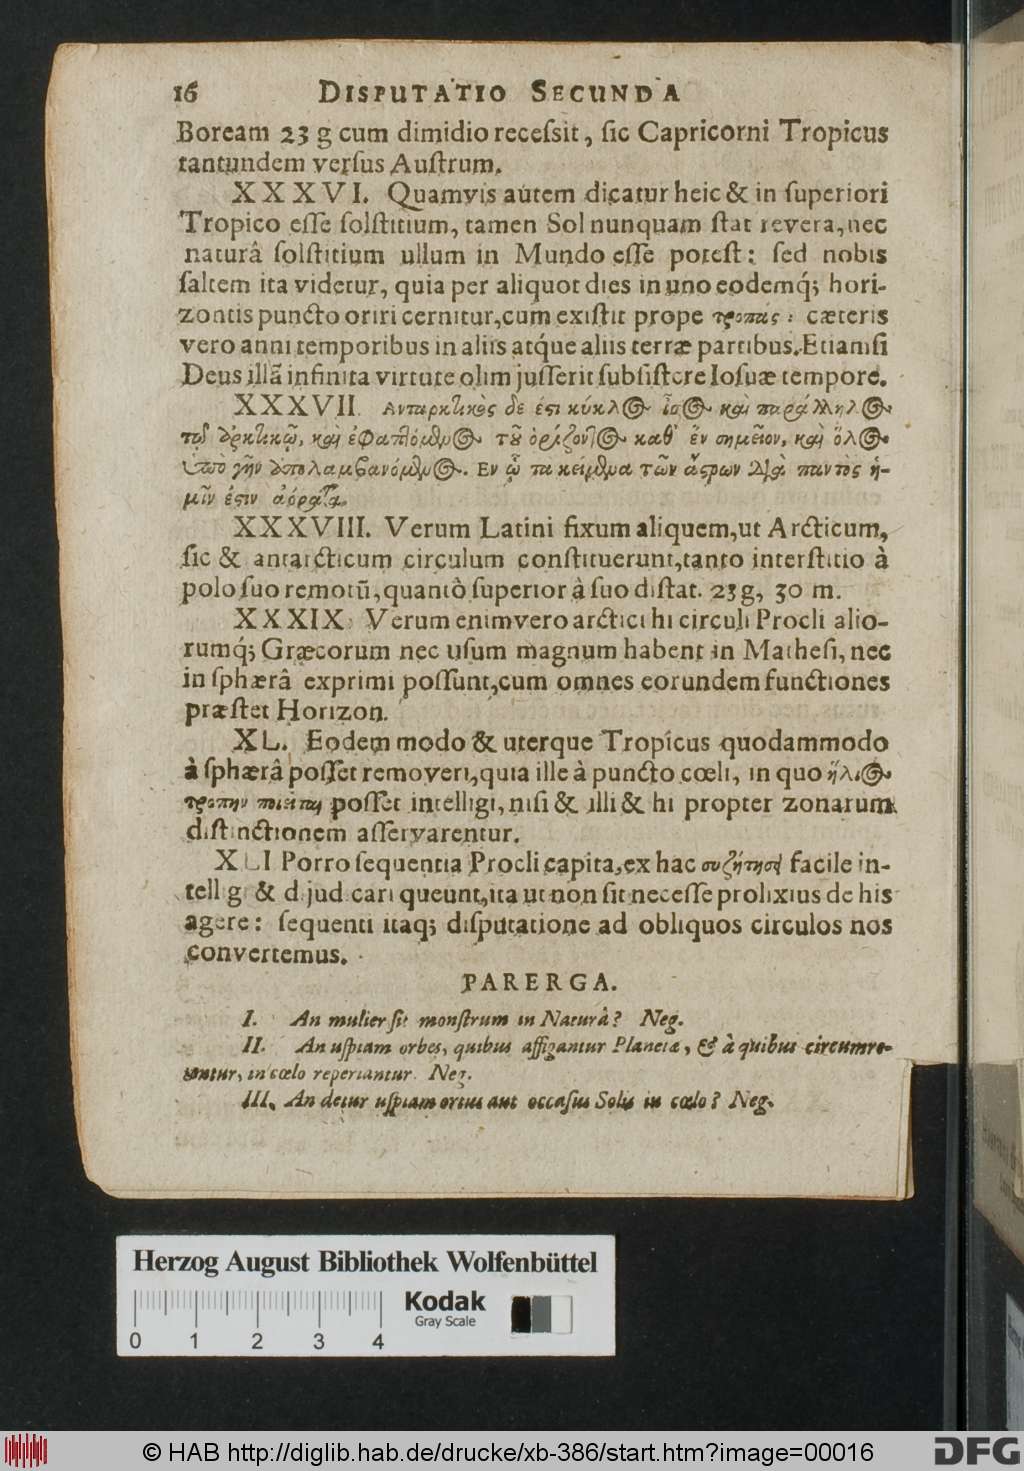 16 DISPUTATIO SECUNDA
Boream 23 g cum dimidio recessit, sic Capricorni Tropicus
tantundem versus Austrum.
XXXVI. Quamvis autem dicatur heic & in superiori
Tropico esse solstitium, tamen Sol nunquam stat revera, nec
naturâ solstitium ullum in Mundo esse potest: sed nobis
saltem ita videtur, quia per aliquot dies in uno eodemq́; hori-
zontis puncto oriri cernitur, cum existit prope τροπάς: cæteris
vero anni temporibus in aliis atq́ue aliis terræ partibus. Etiamsi
Deus illâ infinita virtute olim jusserit subsistere Iosuæ tempore.
XXXVII. Ανταρκτικὸς δε ἐστι κύκλος ἴσος καὶ παράλληλος
τῷ ἀρκτικῷ, καὶ ἐφαπτόμενος τοῦ ὁρίζοντος καθ᾽ ἓν σημεῖον, καὶ ὅλος
ὑπὸ γῆν ἀπολαμβανόμενος. Εν ᾧ τα κείμενα τῶν ἄστρων διὰ παντὸς ἡ-
μῖν ἐστιν ἀόρατα.
XXXVIII. Verum Latini fixum aliquem, ut Arcticum,
sic & antarcticum circulum constituerunt, tanto interstitio à
polo suo remotũ, quantò superior à suo distat. 23 g, 30 m.
XXXIX. Verum enimvero arctici hi circuli Procli alio-
rumq́; Græcorum nec usum magnum habent in Mathesi, nec
in sphærâ exprimi possunt, cum omnes eorundem functiones
præstet Horizon.
XL. Eodem modo & uterque Tropicus quodammodo
à sphærâ posset removeri, quia ille à puncto cœli, in quo ἥλιος
τροπην ποιεῖται posset intelligi, nisi & illi & hi propter zonarum
distinctionem asservarentur.
XLI Porro sequentia Procli capita, ex hac συζήτησει facile in-
telligi & dijudicari queunt, ita ut non sit necesse prolixius de his
agere: sequenti itaq; disputatione ad obliquos circulos nos
convertemus.
PARERGA.
I. An mulier sit monstrum in Naturâ? Neg.
II. An uspiam orbes, quibus affigantur Planetæ, & à quibus circumve-
untur, in cœlo reperiantur. Neg.
III. An detur uspiam ortus aut occasus Solis in cœlo? Neg.
Herzog August Bibliothek Wolfenbüttel
Kodak
Gray Scale
0 1 2 3 4
© HAB http://diglib.hab.de/drucke/xb-386/start.htm?image=00016
DFG